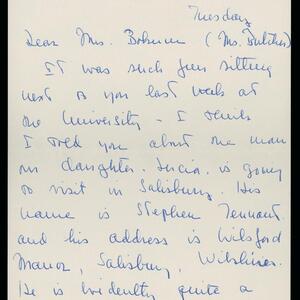 Tuesday
Dear Mrs. (Ms. Butcher)
It was such fun sitting
next to you last week at
the University - I think
I told you about the man
our daughter, Lucia, is going
to visit in Salisbury. His
name is Stephen Tennant.
and his address is Wilsford
Manor, Salisbury, Wiltshire.
He is evidently quite a